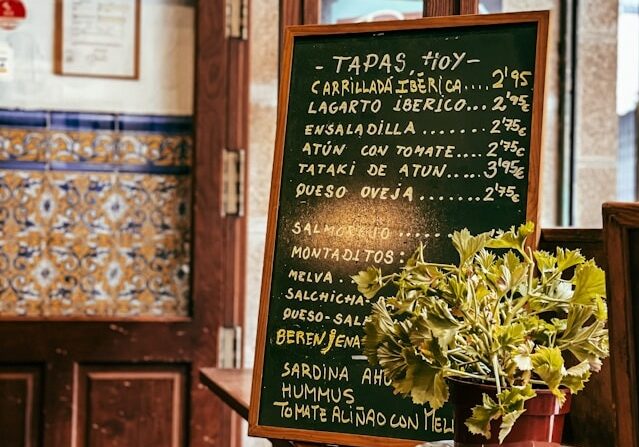 - TAPAS, HOY -
CARRILLADA IBÉRICA.... 2'95
LAGARTO IBERICO... 2'95€
ENSALADILLA ....... 2'75€
ATÚN CON TOMATE.... 2'75€
TATAKI DE ATUN..... 3'95€
QUESO OVEJA ....... 2'75€
SALMOREJO .....
MONTADITOS:
MELVA ..
SALCHICHA-
QUESO-
BERENJENA
SARDINA
HUMMUS
TOMATE ALIÑAO CON